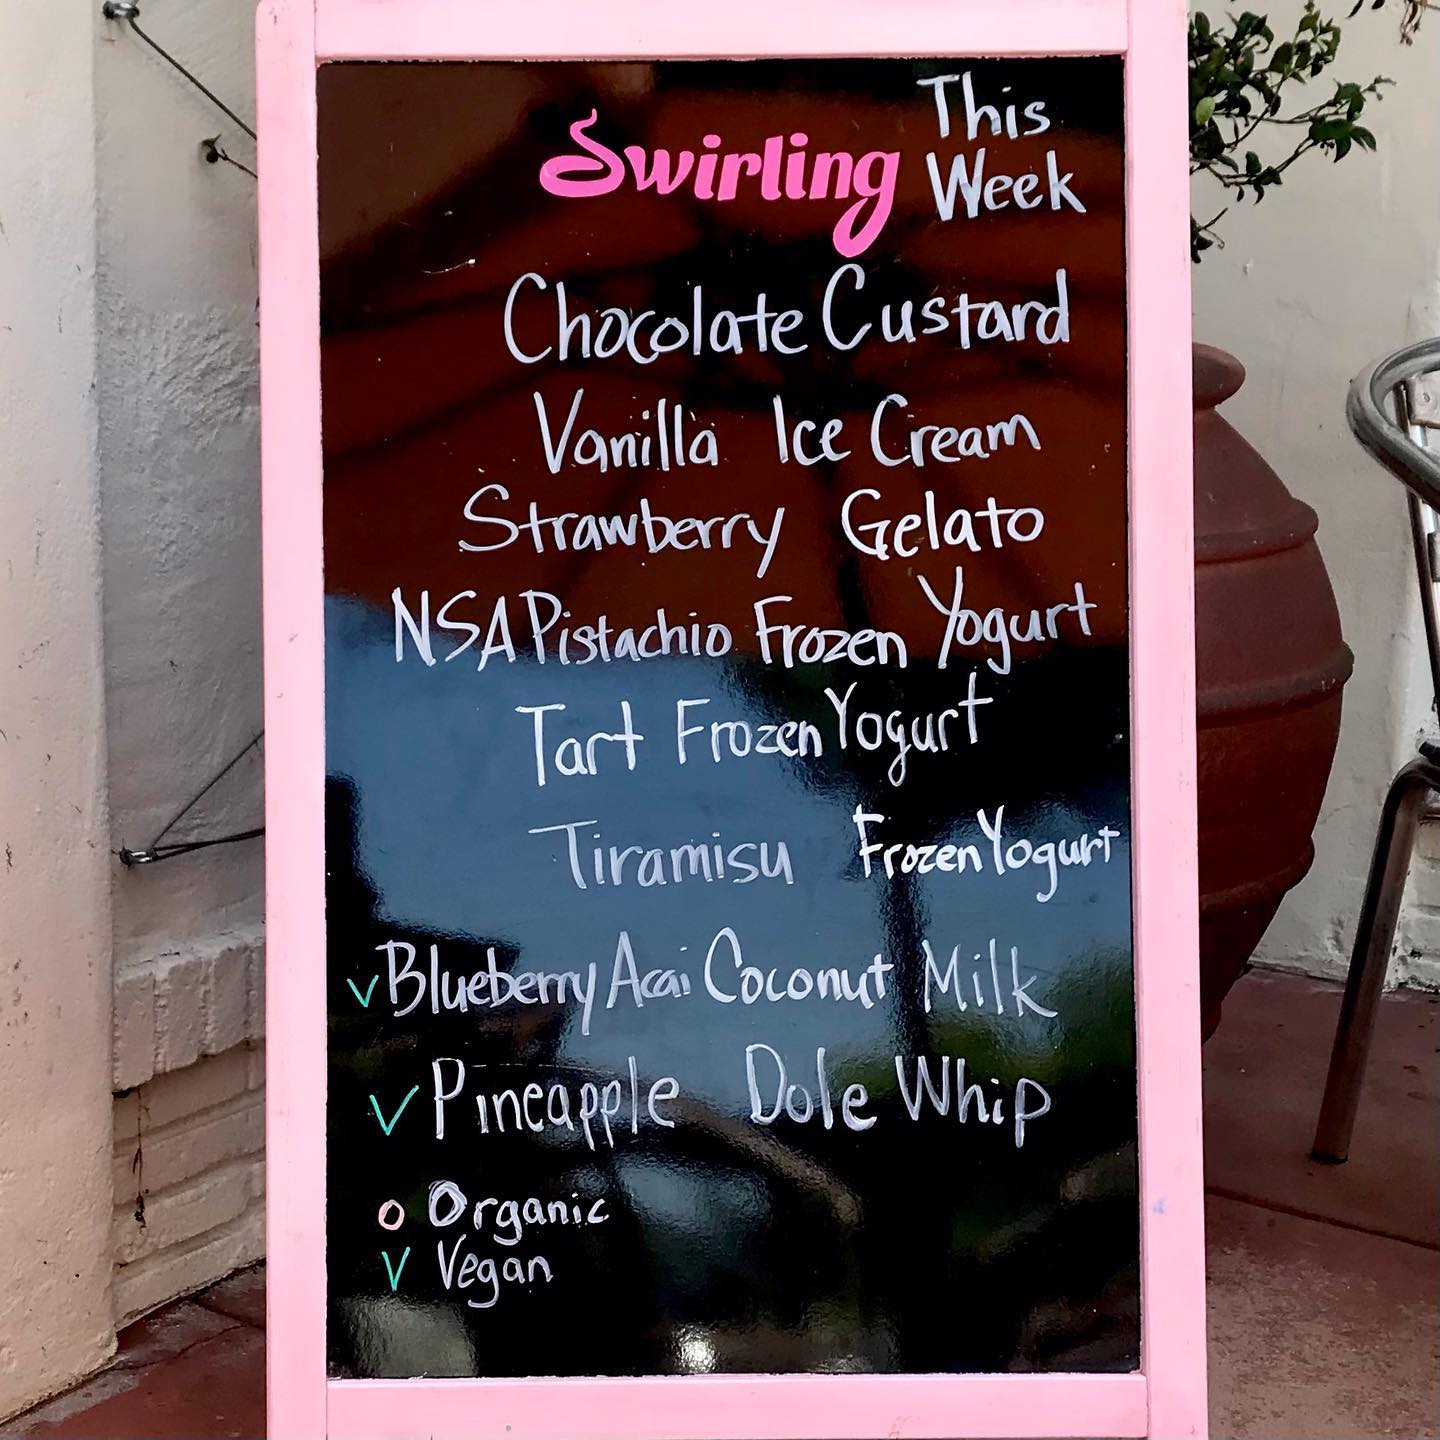 Swirling This Week
Chocolate Custard
Vanilla Ice Cream
Strawberry Gelato
NSA Pistachio Frozen Yogurt
Tart Frozen Yogurt
Tiramisu Frozen Yogurt
V Blueberry Acai Coconut Milk
V Pineapple Dole Whip
O Organic
V Vegan